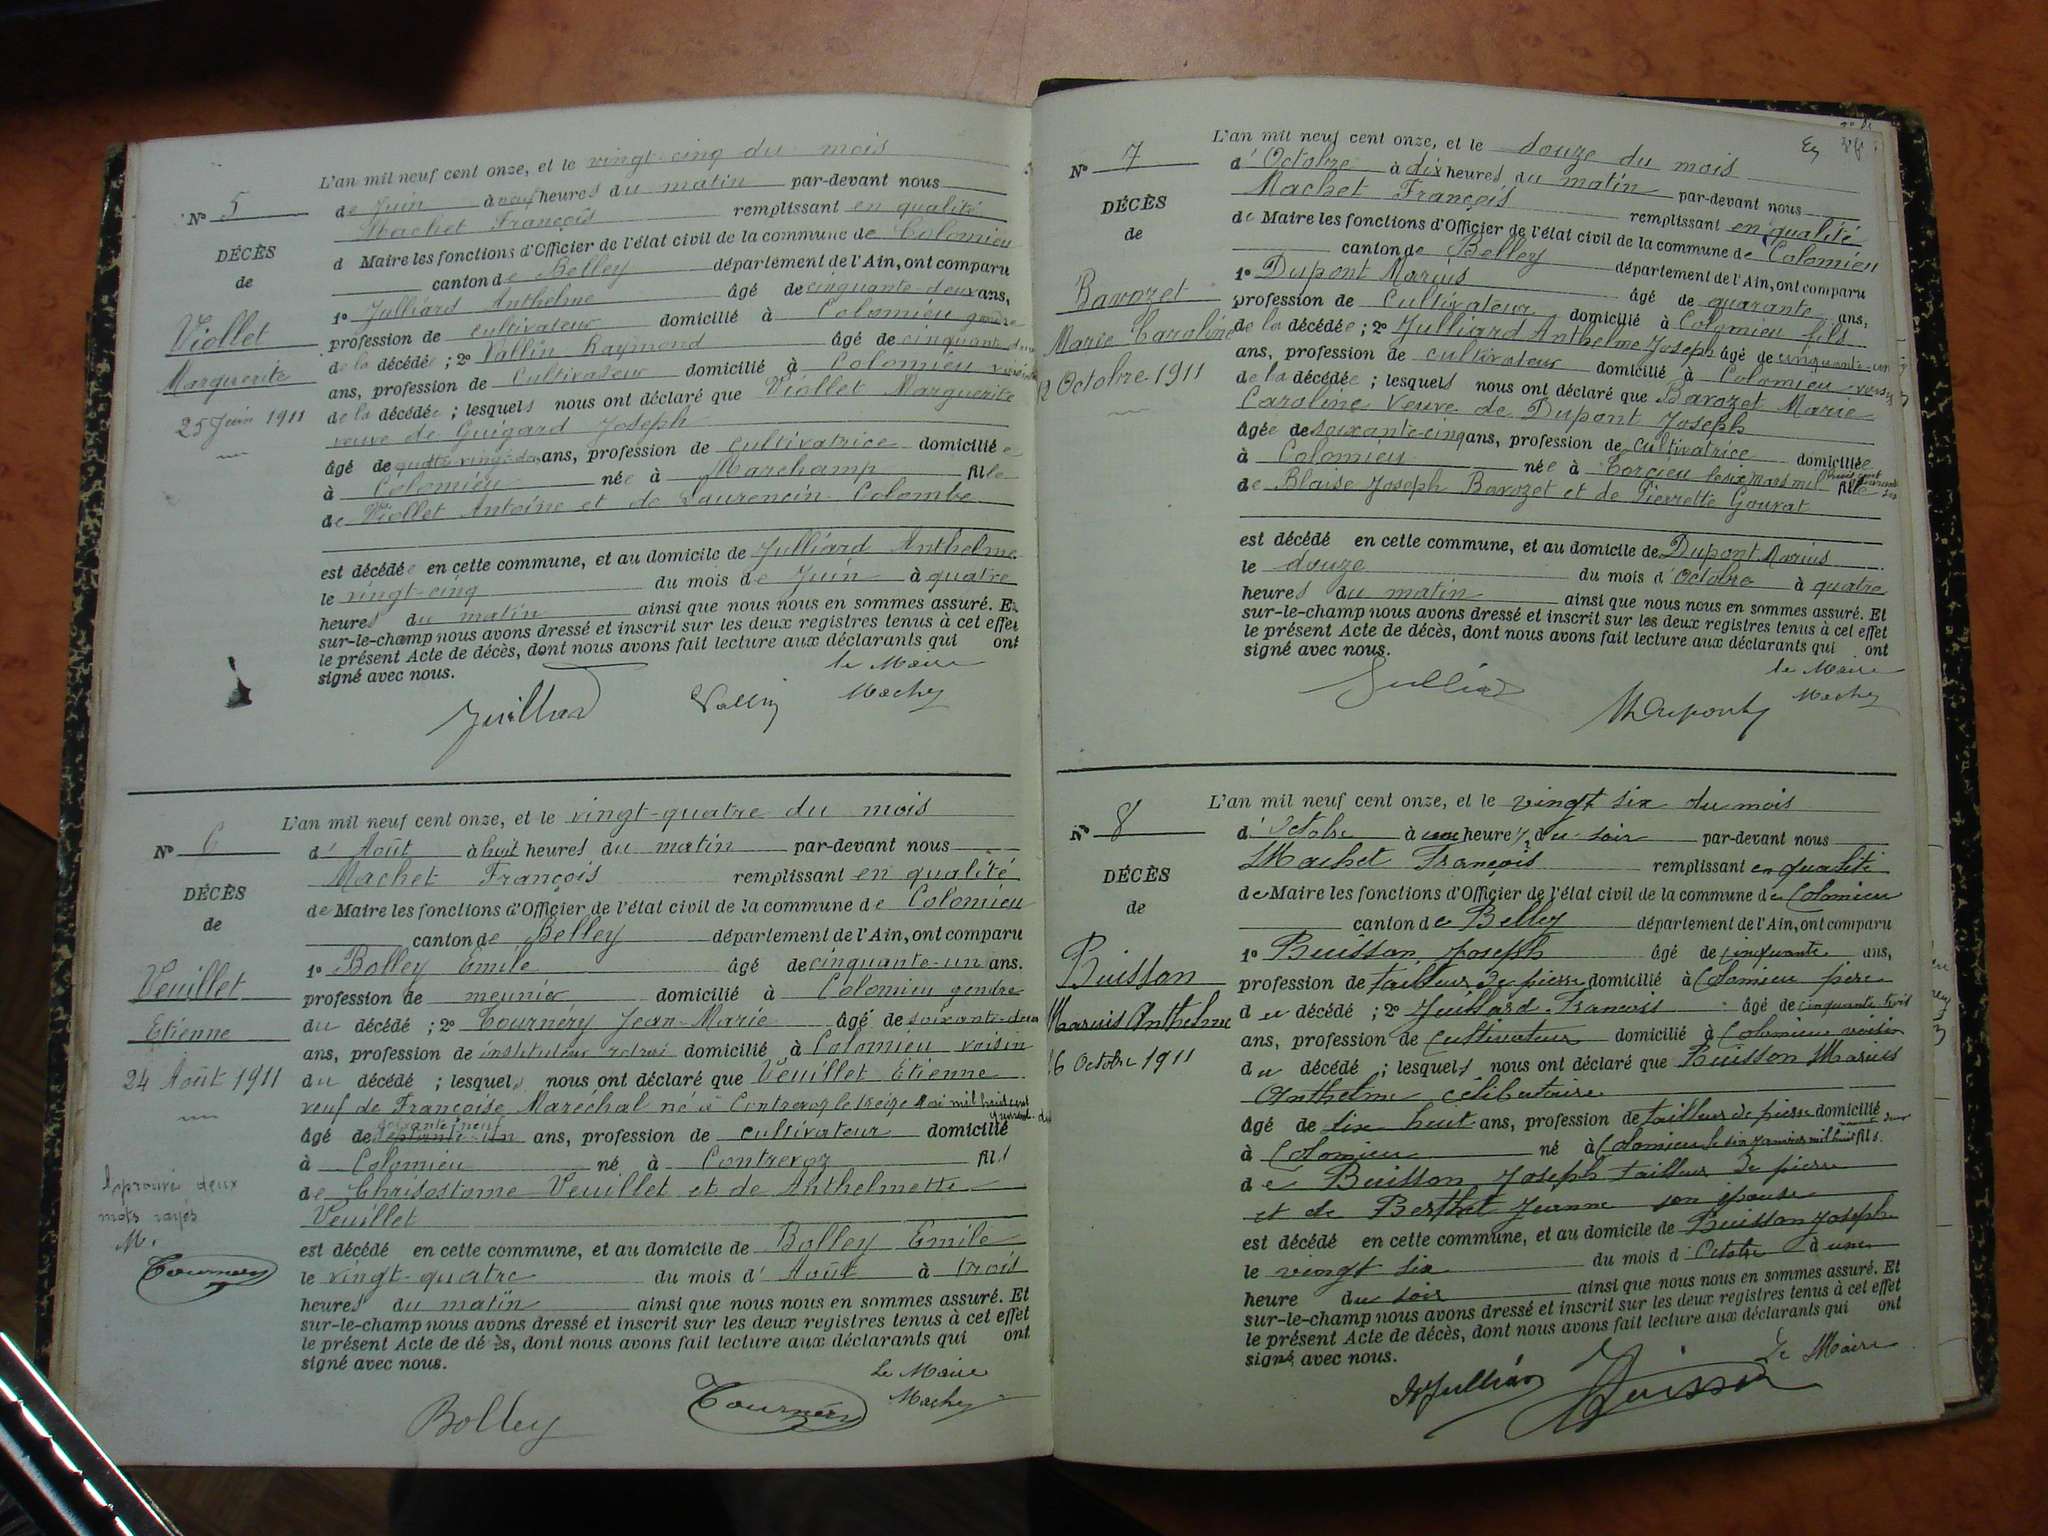 L'an mil neuf cent onze, et le vingt-cinq du mois
N° 5
de Juin à neuf heures du matin par-devant nous
Machet François remplissant en qualité
DÉCÈS
de
d Maire les fonctions d'Officier de l'état civil de la commune de Colomieu
canton de Belley département de l'Ain, ont comparu
1° Julliard Anthelme âgé de cinquante-deux ans,
Viollet
Marguerite
25 Juin 1911
profession de cultivateur domicilié à Colomieu gendre
de la décédée ; 2° Vallin Raymond âgé de cinquante
ans, profession de cultivateur domicilié à Colomieu voisin
de la décédée ; lesquels nous ont déclaré que Viollet Marguerite
veuve de Guigard Joseph
âgé de quatre-vingt ans, profession de cultivatrice domiciliée
à Colomieu née à Marchamp fille
de Viollet Antoine et de Laurencin Colombe
est décédée en cette commune, et au domicile de Julliard Anthelme
le vingt-cinq du mois de Juin à quatre
heures du matin ainsi que nous nous en sommes assuré. Et
sur-le-champ nous avons dressé et inscrit sur les deux registres tenus à cet effet
le présent Acte de décès, dont nous avons fait lecture aux déclarants qui ont
signé avec nous.
le Maire
Juillard Vallin Machet
L'an mil neuf cent onze, et le vingt-quatre du mois
N° 6
d' Août à huit heures du matin par-devant nous
Machet François remplissant en qualité
DÉCÈS
de
de Maire les fonctions d'Officier de l'état civil de la commune de Colomieu
canton de Belley département de l'Ain, ont comparu
1° Bolley Emile âgé de cinquante-un ans.
Veuillet
Etienne
24 Août 1911
profession de meunier domicilié à Colomieu gendre
du décédé ; 2° Tournéry Jean-Marie âgé de soixante-deux
ans, profession de instituteur retraité domicilié à Colomieu voisin
du décédé ; lesquels nous ont déclaré que Veuillet Etienne
veuf de Françoise Maréchal né à Contrevoz le treize Mai mil huit cent quarante deux
soixante neuf
âgé de septante-un ans, profession de cultivateur domicilié
à Colomieu né à Contrevoz fils
de Chrisostome Veuillet et de Anthelmette
Veuillet
Approuvé deux
mots rayés
M.
Tournéry
est décédé en cette commune, et au domicile de Bolley Emile
le vingt-quatre du mois d' Août à trois
heures du matin ainsi que nous nous en sommes assuré. Et
sur-le-champ nous avons dressé et inscrit sur les deux registres tenus à cet effet
le présent Acte de décès, dont nous avons fait lecture aux déclarants qui ont
signé avec nous.
Le Maire
Bolley Tournéry Machet
L'an mil neuf cent onze, et le douze du mois
N° 7
d' Octobre à dix heures du matin par-devant nous
Machet François remplissant en qualité
DÉCÈS
de
de Maire les fonctions d'Officier de l'état civil de la commune de Colomieu
canton de Belley département de l'Ain, ont comparu
1° Dupont Marius âgé de quarante ans,
Barozet
Marie Caroline
12 Octobre 1911
profession de Cultivateur domicilié à Colomieu fils
de la décédée ; 2° Julliard Anthelme Joseph âgé de cinquante-un
ans, profession de cultivateur domicilié à Colomieu voisin
de la décédée ; lesquels nous ont déclaré que Barozet Marie
Caroline Veuve de Dupont Joseph
âgée de soixante-cinq ans, profession de cultivatrice domiciliée
à Colomieu née à Torcieu le six Mars mil huit cent quarante six fille
de Blaise Joseph Barozet et de Pierrette Gourat
est décédé en cette commune, et au domicile de Dupont Marius
le douze du mois d' Octobre à quatre
heures du matin ainsi que nous nous en sommes assuré. Et
sur-le-champ nous avons dressé et inscrit sur les deux registres tenus à cet effet
le présent Acte de décès, dont nous avons fait lecture aux déclarants qui ont
signé avec nous.
le Maire
Julliard M Dupont Machet
L'an mil neuf cent onze, et le vingt six du mois
N° 8
d' Octobre à heure du soir par-devant nous
Machet François remplissant en qualité
DÉCÈS
de
de Maire les fonctions d'Officier de l'état civil de la commune de Colomieu
canton de Belley département de l'Ain, ont comparu
1° Buisson Joseph âgé de cinquante ans,
Buisson
Marius Anthelme
26 Octobre 1911
profession de tailleur de pierre domicilié à Colomieu père
du décédé ; 2° Juillard François âgé de cinquante trois
ans, profession de Cultivateur domicilié à Colomieu voisin
du décédé ; lesquels nous ont déclaré que Buisson Marius
Anthelme célibataire
âgé de dix huit ans, profession de tailleur de pierre domicilié
à Colomieu né à Colomieu le six Janvier mil huit fils
de Buisson Joseph tailleur de pierre
et de Berthet Jeanne son épouse
est décédé en cette commune, et au domicile de Buisson Joseph
le vingt six du mois d' Octobre à une
heure du soir ainsi que nous nous en sommes assuré. Et
sur-le-champ nous avons dressé et inscrit sur les deux registres tenus à cet effet
le présent Acte de décès, dont nous avons fait lecture aux déclarants qui ont
signé avec nous.
Le Maire
Julliard Buisson